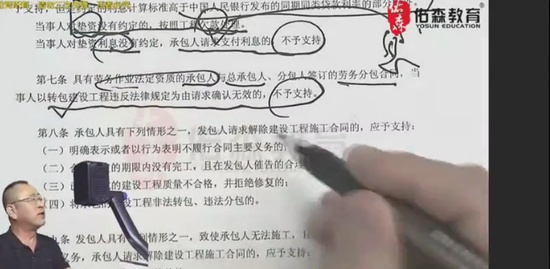 佑森教育
YOSUN EDUCATION
予支持,但是约定的利息计算标准高于中国人民银行发布的同期同类贷款利率的部分
当事人对垫资没有约定的,按照工程欠款处理。
当事人对垫资利息没有约定,承包人请求支付利息的 不予支持
第七条 具有劳务作业法定资质的承包人与总承包人、分包人签订的劳务分包合同,当
事人以转包建设工程违反法律规定为由请求确认无效的,不予支持。
第八条 承包人具有下列情形之一,发包人请求解除建设工程施工合同的,应予支持:
(一)明确表示或者以行为表明不履行合同主要义务的;
(二)合 的期限内没有完工,且在发包人催告的合理
(三)已 的建设工程质量不合格,并拒绝修复的;
(四)将 建设工程非法转包、违法分包的。
九条 发包人具有下列情形之一,致使承包人无法施工,且
义务,承包人请求解除 应予支持: